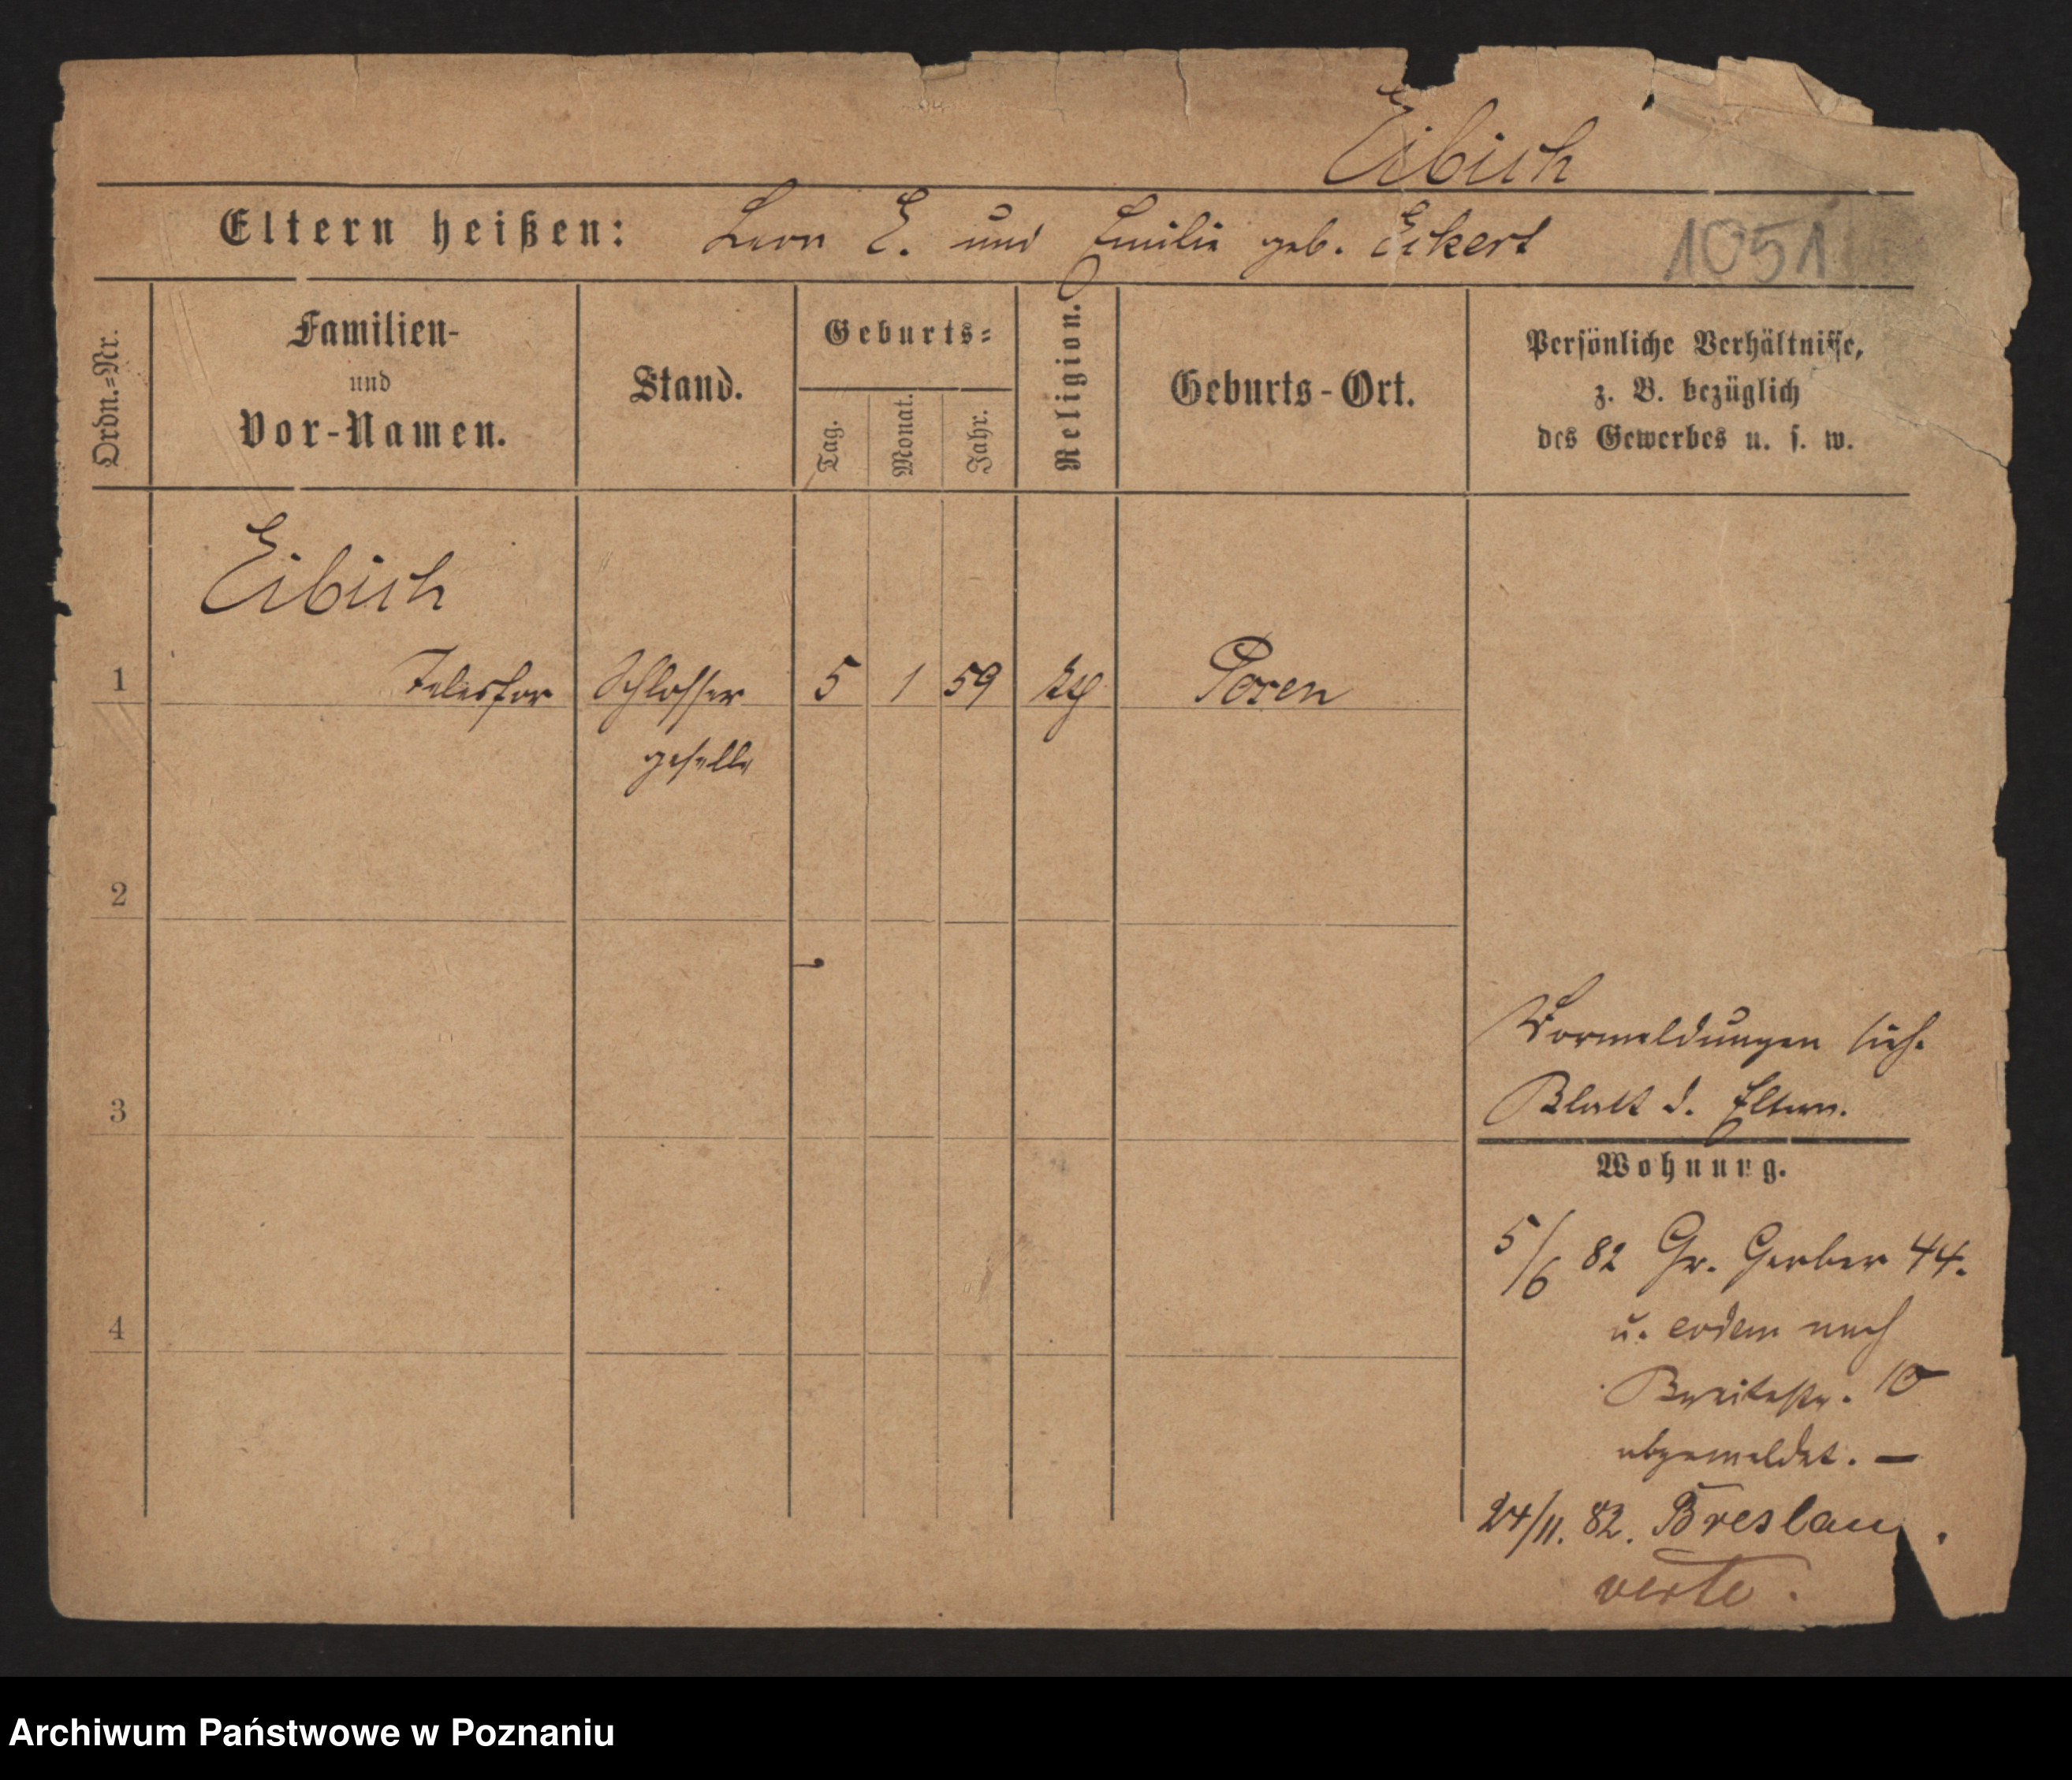 Eibich
Eltern heißen: Leon E. und Emilie geb. Eckert
1051
Ordn.=Nr.
Familien-
und
Vor-Namen.
Stand.
Geburts=
Tag.
Monat.
Jahr.
Religion.
Geburts-Ort.
Persönliche Verhältnisse,
z. B. bezüglich
des Gewerbes u. s. w.
Eibich
1 Telesfor Schlosser 5 1 59 Posen
geselle
2
3
4
Vormeldungen sieh.
Blatt d. Eltern.
Wohnung.
5/6 82 Gr. Gerber 44.
u. nach
Breitestr. 10
abgemeldet. —
24/11. 82. Breslau.
verte.
Archiwum Państwowe w Poznaniu